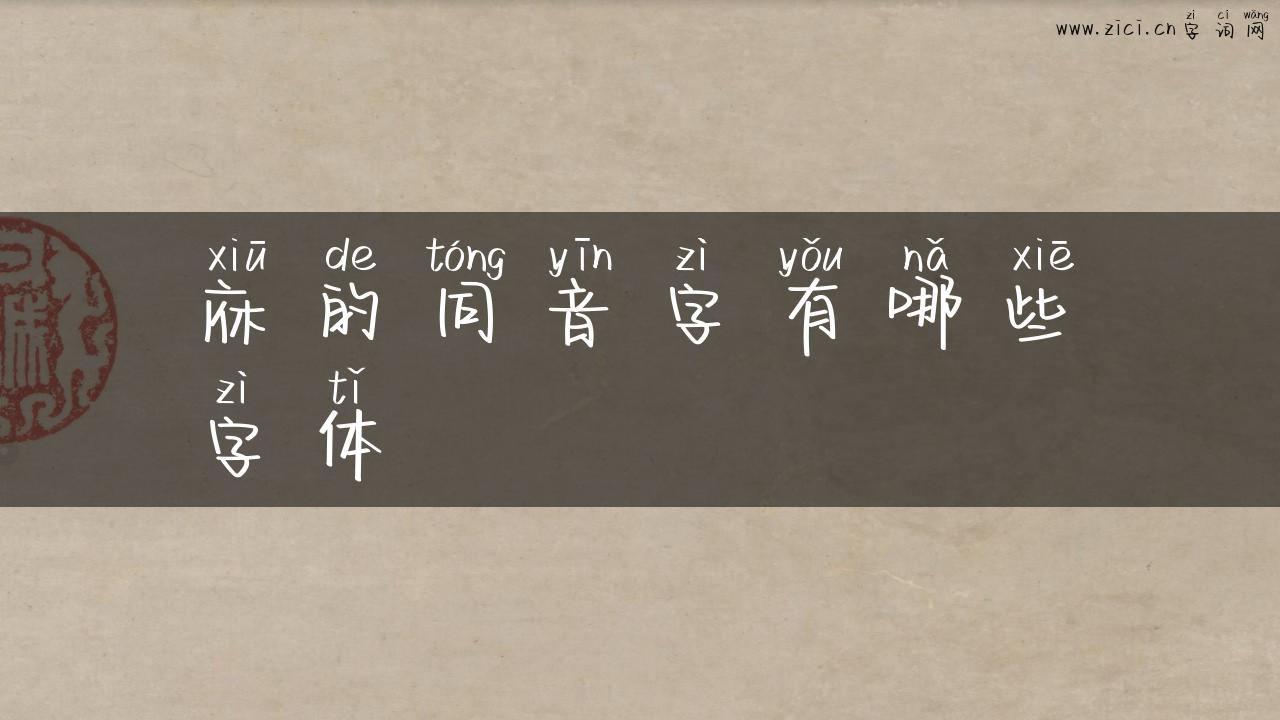 zì cí wǎng
www.zici.cn 字词网
xiū de tóng yīn zì yǒu nǎ xiē
庥的同音字有哪些
zì tǐ
字体